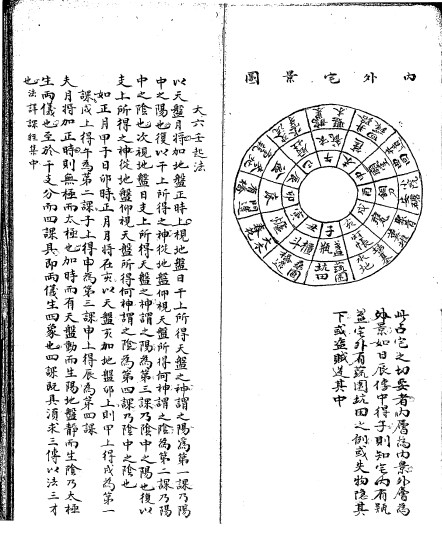 內外宅景圖
子
瓶
蓋
蔬園
坑田
申
酉
卯
巳
午
未
此占宅之切要者內層為內景外層為
外景如日辰傳中得子則知宅內有瓶
蓋宅外有蔬園坑田之例或失物隱其
下或盜賊過其中
大六壬起法
以天盤月將加地盤正時上視地盤日干上所得天盤之神謂之陽為第一課乃陽
中之陽也復以干上所得之神從地盤仰視天盤所得何神謂之陰為第二課乃陽
中之陰也次視地盤日支上所得天盤之神謂之陽為第三課乃陰中之陽也復以
支上所得之神從地盤仰視天盤所得何神謂之陰為第四課乃陰中之陰也
如正月甲子日卯時正月月將在亥以天盤亥加地盤卯上則甲上得戌為第一
課戌上得午為第二課子上得申為第三課申上得辰為第四課
夫月將加正時則無極而太極也加時而有天盤動而生陽地盤靜而生陰乃太極
生兩儀也至於干支分而四課具即兩儀生四象也四課既具須求三傳以法三才
也法詳課經集中